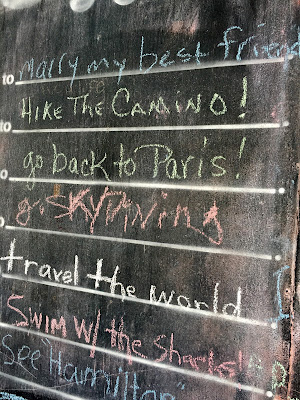 to marry my best friend
to HIKE THE CAMINO!
o go back to Paris!
go SKYDIVING
travel the world
SWIM W/ the Sharks!
See "Hamilton"